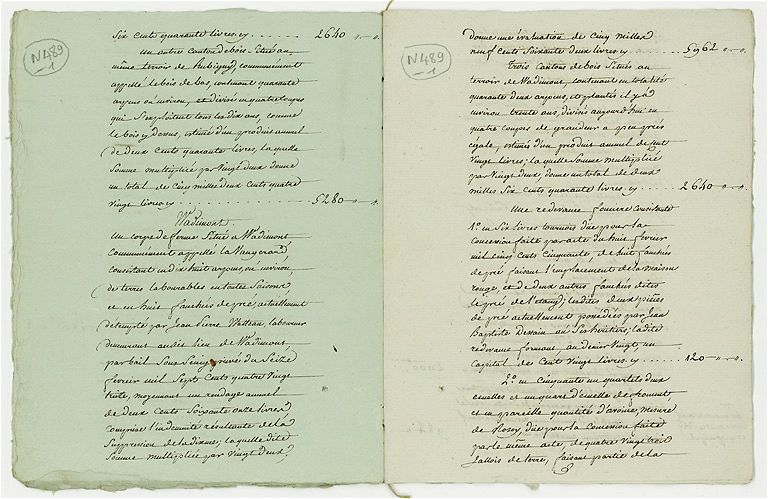 N 489
1
Six cents quarante livres, cy . . . . . . 2640 „ — „
Un autre Canton de bois Situé au
même terroir de Rubigny, communément
appellé le bois de bas, contenant quarante
arpens ou environ, et divisé en quatre coupes
qui S'exploitent tous les dix ans, comme
le bois cy dessus, estimé d'un produit annuel
de deux cents quarante livres, laquelle
Somme multipliée par Vingt deux donne
un total de Cinq mille deux Cents quatre
vingt livres, cy . . . . . . . . . 5280 „ — „
Wadimont
Un corps de ferme Situé a Wadimont
Communément appellé la
Consistant en dix huit arpens, ou environ,
de terres labourables en toutes Saisons
et en huit fauchées de pré, actuellement
detempté par Jean Pierre Watteau laboureur
demeurant audit lieu de Wadimont,
par bail Sous Seing privé du Seize
fevrier mil Sept Cents quatre Vingt
treize, moyennant un rendage annuel
de deux Cents Soixante onze livres,
comprise l'indemnité résultante de la
Suppression de la dixme; laquelle dite
Somme multipliée par vingt deux,
N 489
1
Donne une évaluation de Cinq milles
neuf Cents Soixante deux livres, cy . . . . 5962 „ — „
trois Cantons de bois Situés au
terroir de Wadimont, contenant en totalité
quarante deux arpens, et plantés il y a
environ trente ans, divisés aujourd'hui en
quatre coupes de grandeur a peu près
égale, estimés d'un produit annuel de Cent
Vingt livres; laquelle Somme multipliée
par Vingt deux, donne un total de deux
milles Six Cents quarante livres, cy . . . . . 2640 „ — „
Une redevance fonciere Consistante
1.° en Six livres tournois düe pour la
Concession faite par acte du huit fevrier
mil cinq Cents Cinquante, de huit fauchées
de pré faisant l'emplacement de la Maison
rouge, et de deux autres fauchées dites
le pré de l'étang; lesdites deux pièces
de pré actuellement possédées par Jean
Baptiste Dessain ou Ses heritiers; ladite
redevance formant au denier Vingt un
Capital de Cent Vingt livres, cy . . . . . 120 „ — „
2.° en Cinquante un quartels deux
ecuelles et un quart d'ecuelle de froment
et en pareille quantité d'avoine, mesure
de Rosoy, düe pour la Concession faite
par le même acte, de quatre vingt trois
Jallois de terre, faisant partie de la